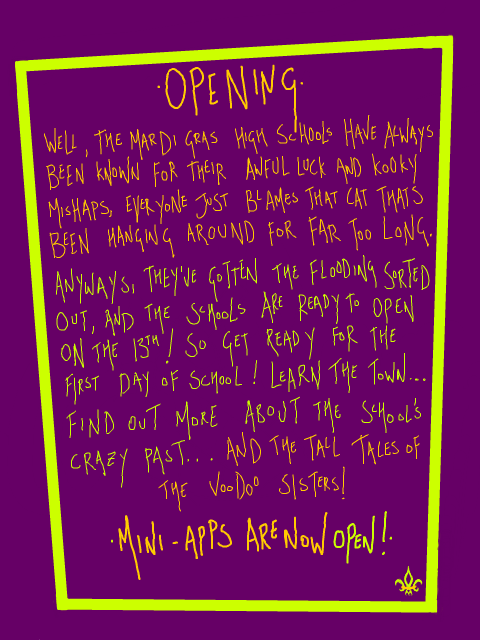 ·OPENING·
WELL, THE MARDI GRAS HIGH SCHOOLS HAVE ALWAYS
BEEN KNOWN FOR THEIR AWFUL LUCK AND KOOKY
MISHAPS, EVERYONE JUST BLAMES THAT CAT THATS
BEEN HANGING AROUND FOR FAR TOO LONG.
ANYWAYS, THEY'VE GOTTEN THE FLOODING SORTED
OUT, AND THE SCHOOLS ARE READY TO OPEN
ON THE 13TH! SO GET READY FOR THE
FIRST DAY OF SCHOOL! LEARN THE TOWN...
FIND OUT MORE ABOUT THE SCHOOL'S
CRAZY PAST... AND THE TALL TALES OF
THE VOODOO SISTERS!
·MINI-APPS ARE NOW OPEN!·